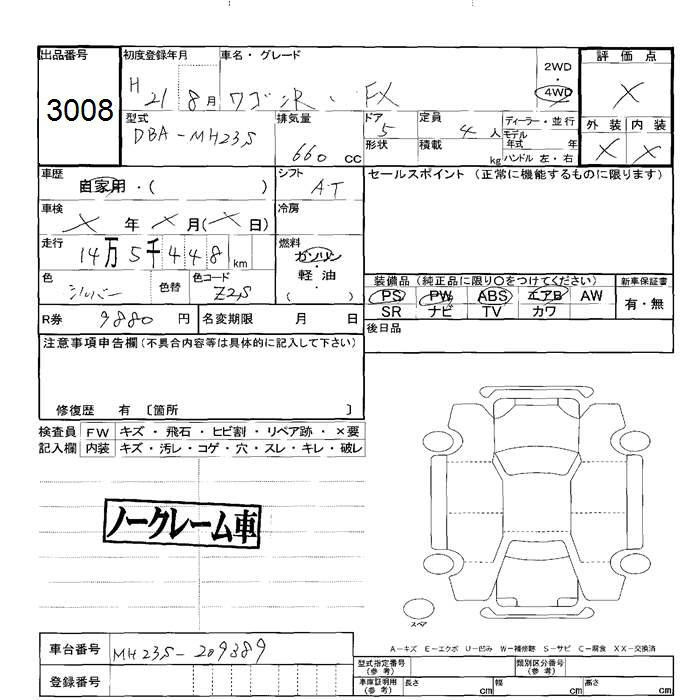 出品番号 初度登録年月 車名・グレード 評価点
3008 H 21 8月 ワゴンR・ FX 2WD・4WD X
型式 排気量 ドア 定員 ディーラー・並行 外装 内装
DBA-MH23S 660 CC 5 4人 モデル年式 年 X X
形状 積載 kg ハンドル 左・右
車歴 シフト セールスポイント (正常に機能するものに限ります)
自家用・( ) AT
車検 X年 X月(X日) 冷房
走行 14万5千448km 燃料 ガソリン・軽油 ( )
色 シルバー 色替 色コード Z2S
装備品 (純正品に限り〇をつけてください) 新車保証書
PS PW ABS エアB AW 有・無
SR ナビ TV カワ
R券 9880円 名変期限 月 日 後日品
注意事項申告欄(不具合内容等は具体的に記入して下さい)
修復歴 有 〔箇所 〕
検査員 FW キズ・飛石・ヒビ割・リペア跡・×要
記入欄 内装 キズ・汚レ・コゲ・穴・スレ・キレ・破レ
ノークレーム車
スペア
A-キズ E-エクボ U-凹み W-補修跡 S-サビ C-腐食 XX-交換済
車台番号 MH23S-209389
登録番号
型式指定番号(参考) 類別区分番号(参考)
車庫証明用(参考) 長さ cm 幅 cm 高さ cm